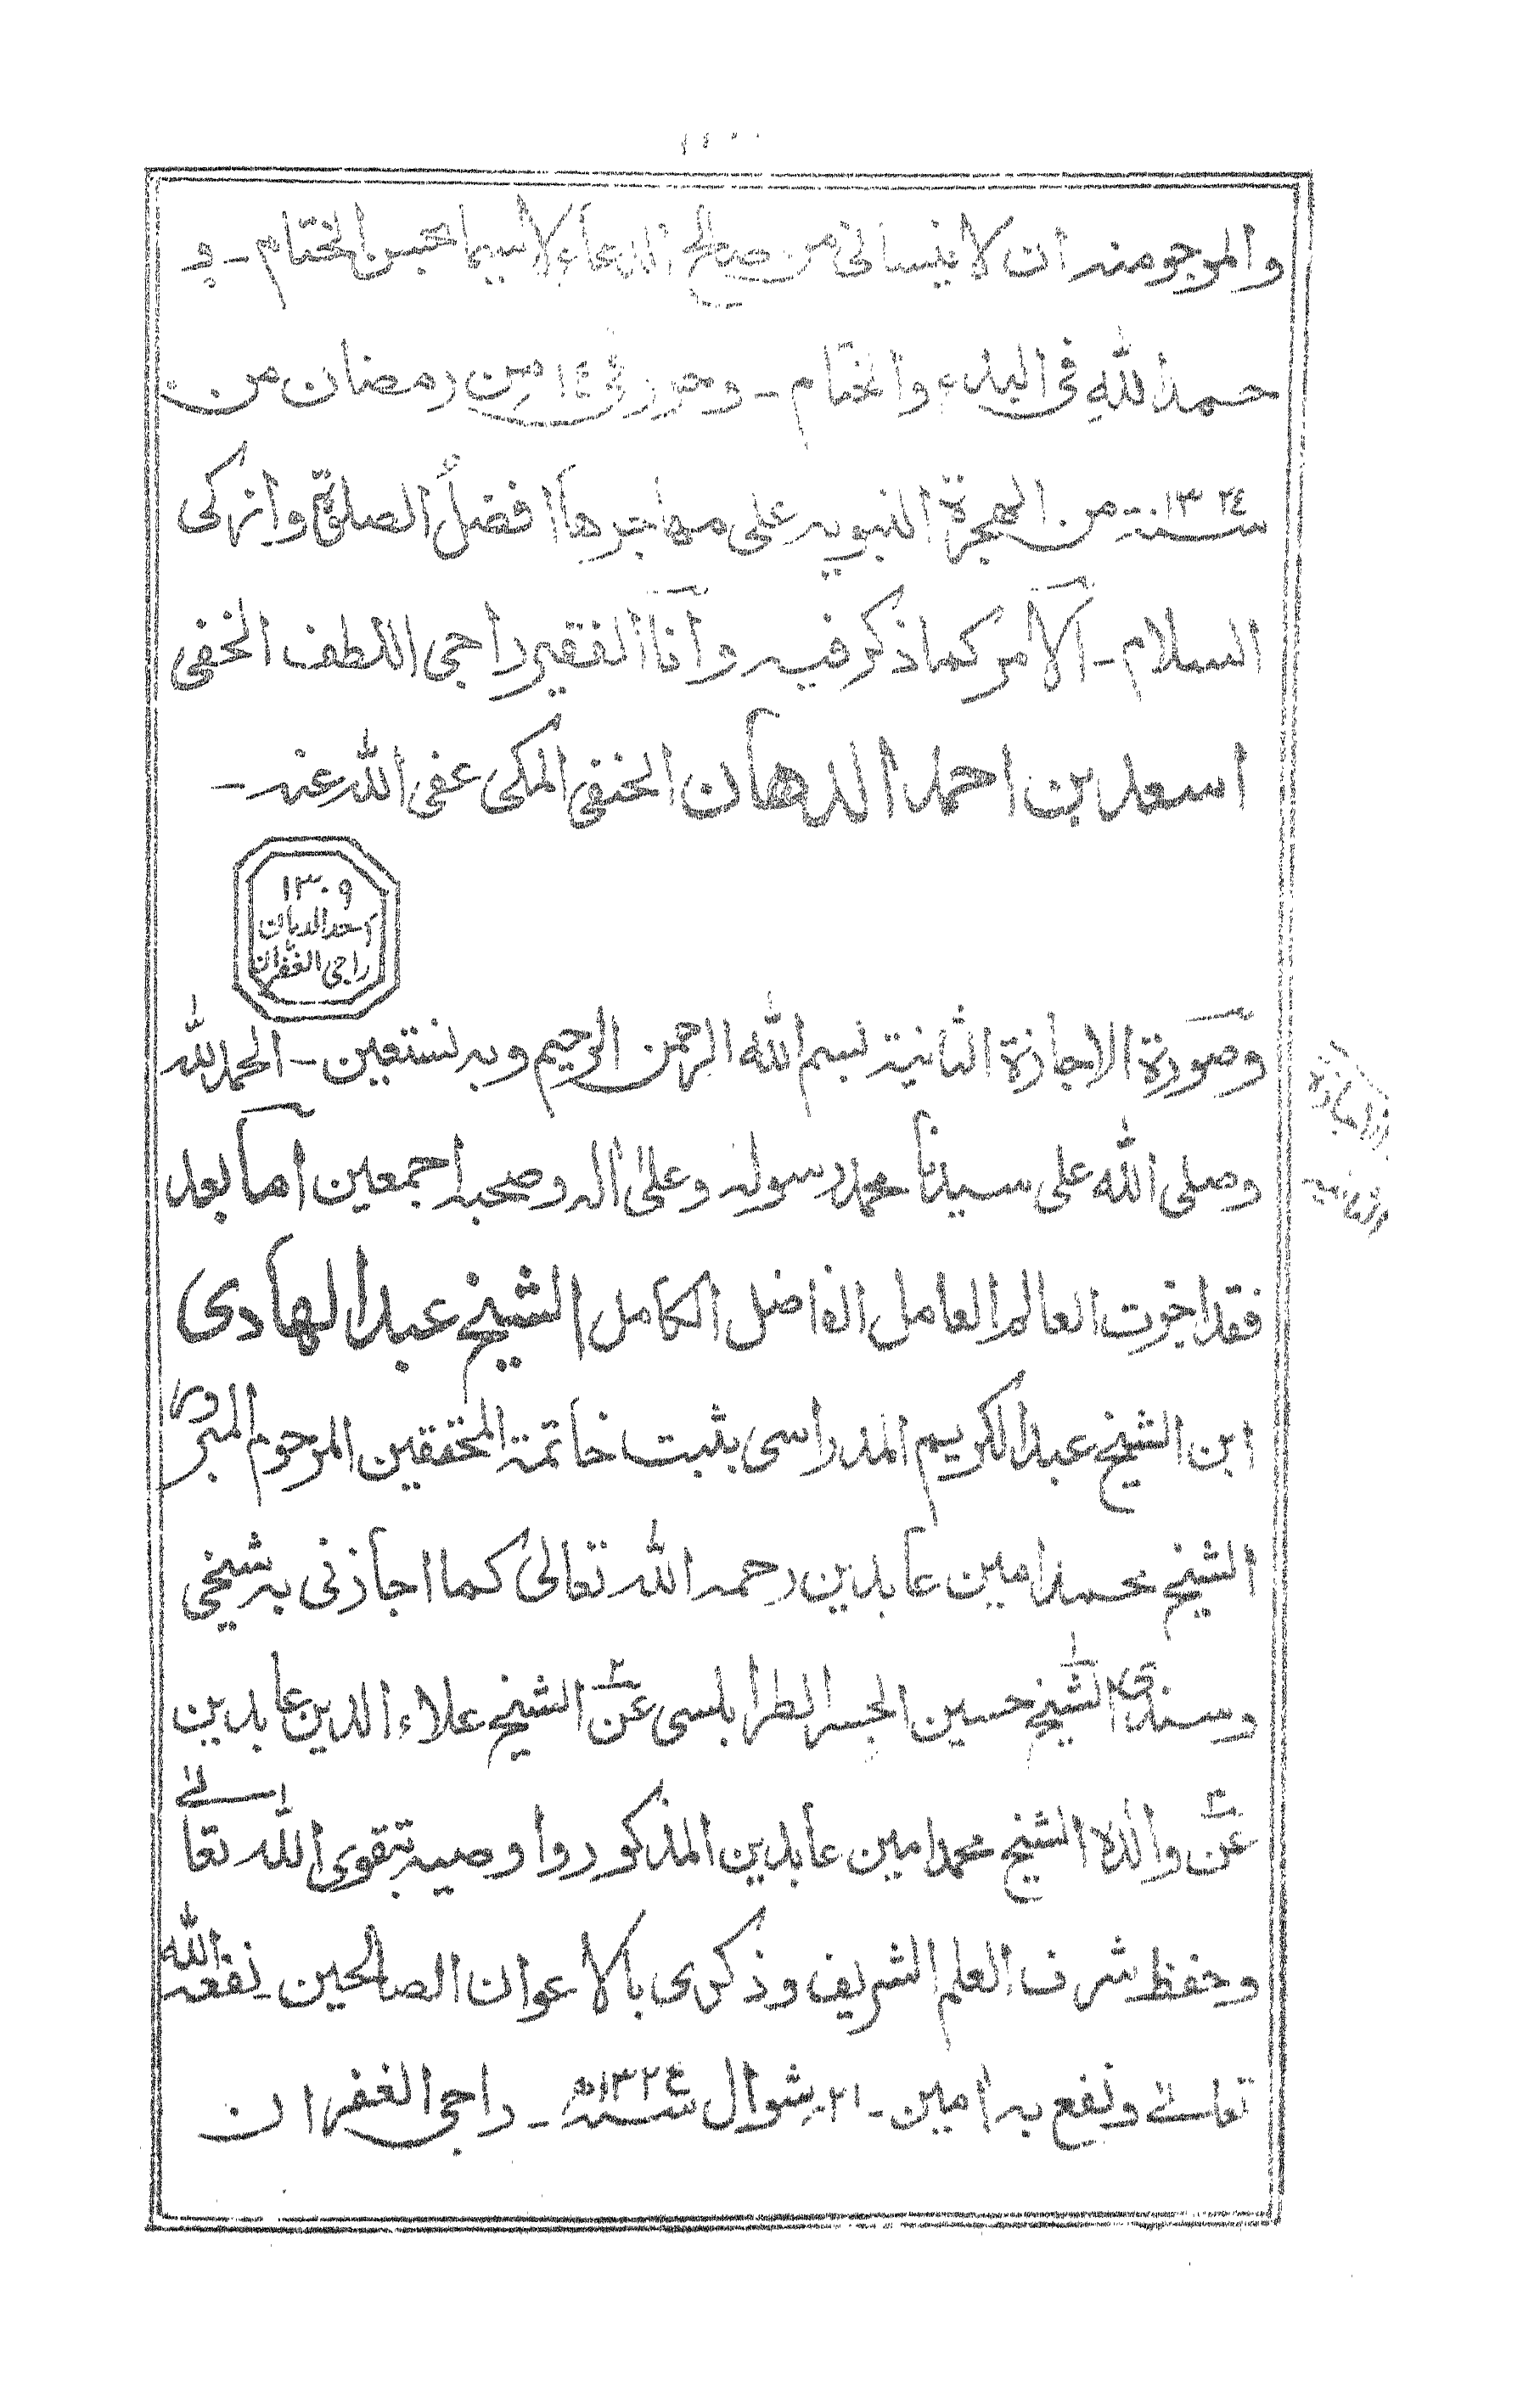 والمرجو منه ان لا ينسانى من صالح الدعاء لاسيما بحسن الختام - و
حمد اللهِ فى البدء والختام - وحرر فى ١٤ من رمضان من
سنة ١٣٢٤ من الهجرة النبويه على مهاجرها افضلُ الصلوٰة وازكى
السلام - الآمر كما ذكر فيه وآنا الفقير راجى اللطف الخفى
اسعد بن احمد الدهان الحنفى المكى عفى الله عنه -
١٣٠٩
احمد الدهان
راجى الغفران
وصورة الاجازة الثانية بسم الله الرحمن الرحيم وبه نستعين - الحمد لله
الاجازة
الثانيه
وصلى الله على سيدنا محمد رسوله وعلىٰ اله وصحبه اجمعين آما بعد
فقد اجزت العالم العامل الفاضل الكامل الشيخ عبد الهادى
ابن الشيخ عبد الكريم المدراسى بثبت خاتمة المحققين المرحوم المبرور
الشيخ محمد امين عابدين رحمه الله تعالىٰ كما اجازنى به شيخى
وسندى الشيخ حسين الجسر الطرابلسى عن الشيخ علاء الدين عابدين
عن والده الشيخ محمد امين عابدين المذكور واوصيه بتقوى الله تعالىٰ
وحفظ شرف العلم الشريف وذكرى بالاعوان الصالحين - نفعه الله
تعالےٰ ونفع به امين - ٢١ شوال سنة ١٣٢٤ھ - راجى الغفران